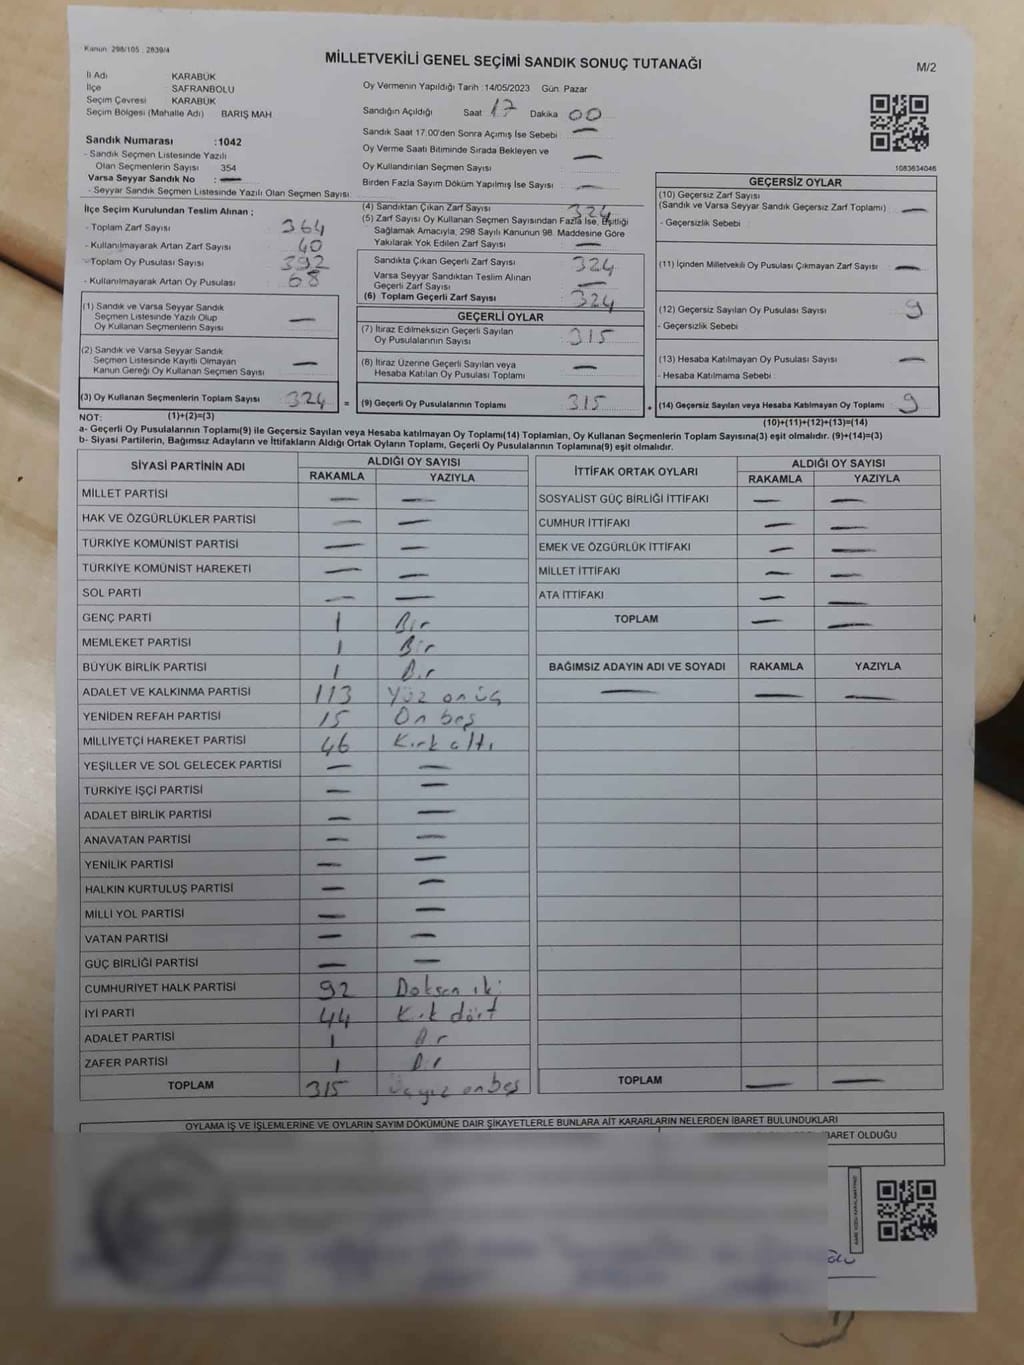 Kanun: 298/105 ; 2839/4
MİLLETVEKİLİ GENEL SEÇİMİ SANDIK SONUÇ TUTANAĞI
M/2
İl Adı KARABÜK
İlçe SAFRANBOLU
Seçim Çevresi KARABÜK
Seçim Bölgesi (Mahalle Adı) BARIŞ MAH
Sandık Numarası :1042
- Sandık Seçmen Listesinde Yazılı
Olan Seçmenlerin Sayısı 354
Varsa Seyyar Sandık No : —
- Seyyar Sandık Seçmen Listesinde Yazılı Olan Seçmen Sayısı
Oy Vermenin Yapıldığı Tarih :14/05/2023 Gün: Pazar
Sandığın Açıldığı Saat 17 Dakika 00
Sandık Saat 17.00'den Sonra Açımış İse Sebebi —
Oy Verme Saati Bitiminde Sırada Bekleyen ve
Oy Kullandırılan Seçmen Sayısı —
Birden Fazla Sayım Döküm Yapılmış İse Sayısı —
1083634046
İlçe Seçim Kurulundan Teslim Alınan ;
- Toplam Zarf Sayısı 364
- Kullanılmayarak Artan Zarf Sayısı 40
- Toplam Oy Pusulası Sayısı 392
- Kullanılmayarak Artan Oy Pusulası 68
(1) Sandık ve Varsa Seyyar Sandık
Seçmen Listesinde Yazılı Olup
Oy Kullanan Seçmenlerin Sayısı —
(2) Sandık ve Varsa Seyyar Sandık
Seçmen Listesinde Kayıtlı Olmayan
Kanun Gereği Oy Kullanan Seçmen Sayısı —
(3) Oy Kullanan Seçmenlerin Toplam Sayısı 324 =
(4) Sandıktan Çıkan Zarf Sayısı 324
(5) Zarf Sayısı Oy Kullanan Seçmen Sayısından Fazla İse, Eşitliği
Sağlamak Amacıyla, 298 Sayılı Kanunun 98. Maddesine Göre
Yakılarak Yok Edilen Zarf Sayısı —
Sandıkta Çıkan Geçerli Zarf Sayısı 324
Varsa Seyyar Sandıktan Teslim Alınan
Geçerli Zarf Sayısı —
(6) Toplam Geçerli Zarf Sayısı 324
GEÇERLİ OYLAR
(7) İtiraz Edilmeksizin Geçerli Sayılan
Oy Pusulalarının Sayısı 315
(8) İtiraz Üzerine Geçerli Sayılan veya
Hesaba Katılan Oy Pusulası Toplamı —
(9) Geçerli Oy Pusulalarının Toplamı 315 +
GEÇERSİZ OYLAR
(10) Geçersiz Zarf Sayısı
(Sandık ve Varsa Seyyar Sandık Geçersiz Zarf Toplamı) —
- Geçersizlik Sebebi :
(11) İçinden Milletvekili Oy Pusulası Çıkmayan Zarf Sayısı —
(12) Geçersiz Sayılan Oy Pusulası Sayısı 9
- Geçersizlik Sebebi :
(13) Hesaba Katılmayan Oy Pusulası Sayısı —
- Hesaba Katılmama Sebebi :
(14) Geçersiz Sayılan veya Hesaba Katılmayan Oy Toplamı 9
NOT: (1)+(2)=(3) (10)+(11)+(12)+(13)=(14)
a- Geçerli Oy Pusulalarının Toplamı(9) ile Geçersiz Sayılan veya Hesaba katılmayan Oy Toplamı(14) Toplamları, Oy Kullanan Seçmenlerin Toplam Sayısına(3) eşit olmalıdır. (9)+(14)=(3)
b- Siyasi Partilerin, Bağımsız Adayların ve İttifakların Aldığı Ortak Oyların Toplamı, Geçerli Oy Pusulalarının Toplamına(9) eşit olmalıdır.
SİYASİ PARTİNİN ADI ALDIĞI OY SAYISI
RAKAMLA YAZIYLA
MİLLET PARTİSİ — —
HAK VE ÖZGÜRLÜKLER PARTİSİ — —
TÜRKİYE KOMÜNİST PARTİSİ — —
TÜRKİYE KOMÜNİST HAREKETİ — —
SOL PARTİ — —
GENÇ PARTİ 1 Bir
MEMLEKET PARTİSİ 1 Bir
BÜYÜK BİRLİK PARTİSİ 1 Bir
ADALET VE KALKINMA PARTİSİ 113 Yüz onüç
YENİDEN REFAH PARTİSİ 15 On beş
MİLLİYETÇİ HAREKET PARTİSİ 46 Kırk altı
YEŞİLLER VE SOL GELECEK PARTİSİ — —
TÜRKİYE İŞÇİ PARTİSİ — —
ADALET BİRLİK PARTİSİ — —
ANAVATAN PARTİSİ — —
YENİLİK PARTİSİ — —
HALKIN KURTULUŞ PARTİSİ — —
MİLLİ YOL PARTİSİ — —
VATAN PARTİSİ — —
GÜÇ BİRLİĞİ PARTİSİ — —
CUMHURİYET HALK PARTİSİ 92 Doksan iki
İYİ PARTİ 44 Kırk dört
ADALET PARTİSİ 1 Bir
ZAFER PARTİSİ 1 Bir
TOPLAM 315 Üçyüz onbeş
İTTİFAK ORTAK OYLARI ALDIĞI OY SAYISI
RAKAMLA YAZIYLA
SOSYALİST GÜÇ BİRLİĞİ İTTİFAKI — —
CUMHUR İTTİFAKI — —
EMEK VE ÖZGÜRLÜK İTTİFAKI — —
MİLLET İTTİFAKI — —
ATA İTTİFAKI — —
TOPLAM — —
BAĞIMSIZ ADAYIN ADI VE SOYADI RAKAMLA YAZIYLA
— — —
TOPLAM — —
OYLAMA İŞ VE İŞLEMLERİNE VE OYLARIN SAYIM DÖKÜMÜNE DAİR ŞİKAYETLERLE BUNLARA AİT KARARLARIN NELERDEN İBARET BULUNDUKLARI
İBARET OLDUĞU